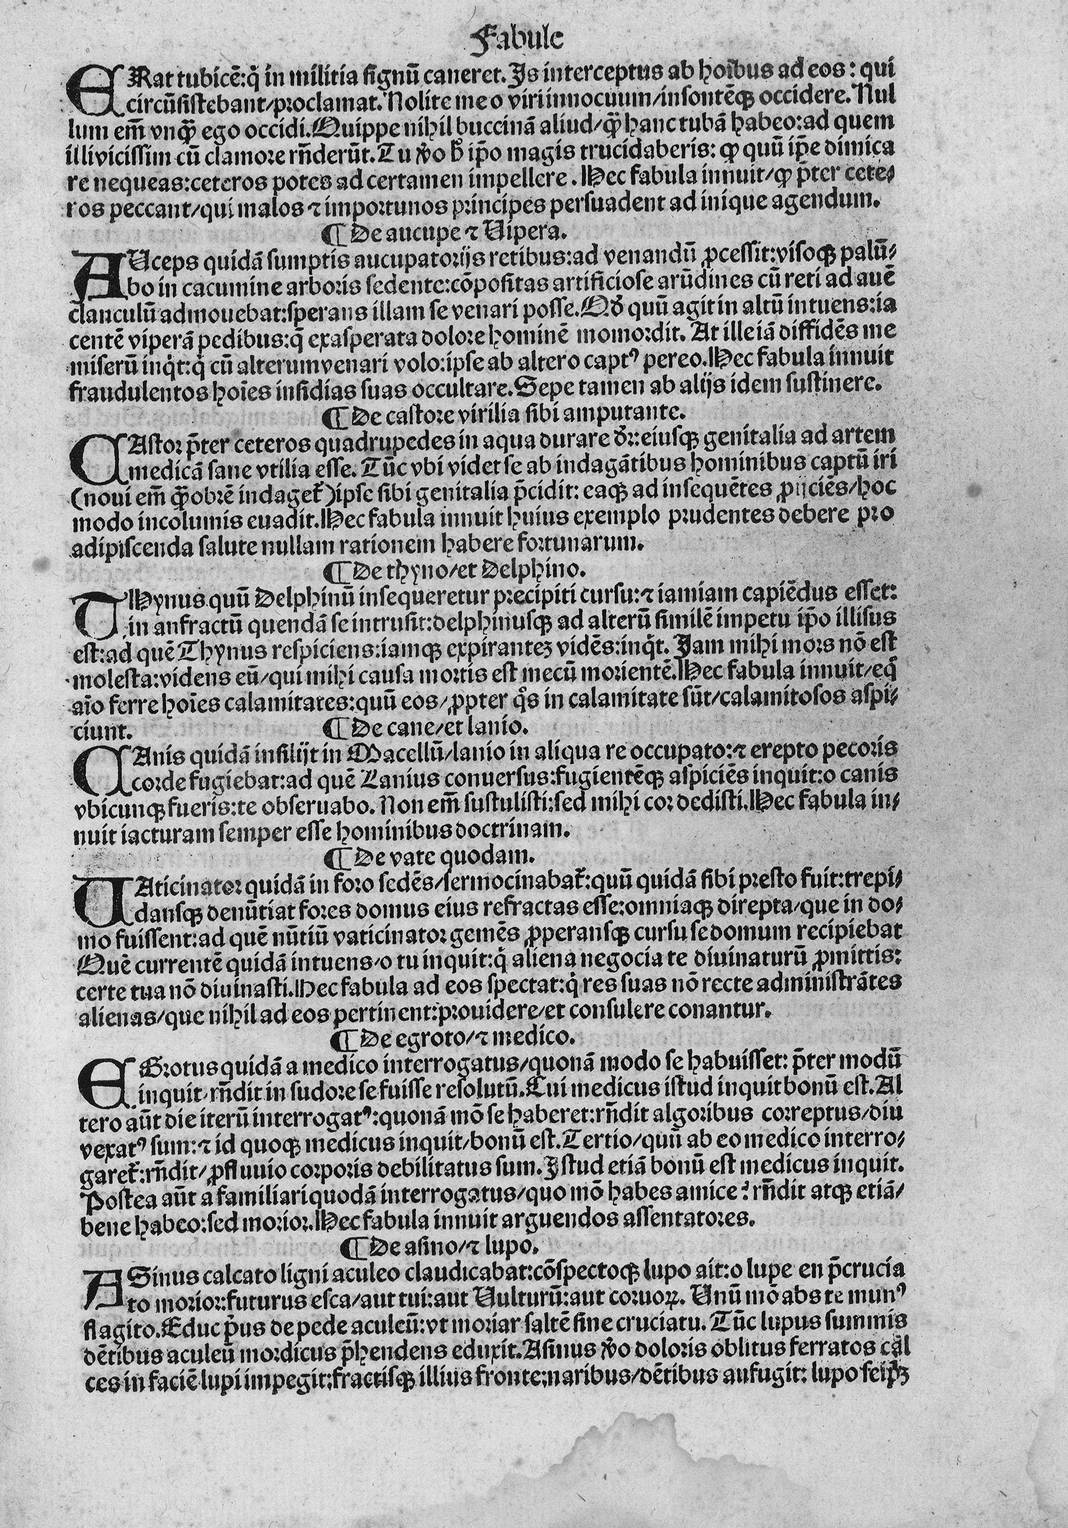 Fabule
ERat tubicē:q̄ in militia signū caneret. Is interceptus ab hoībus ad eos: qui
circūsistebant/proclamat. Nolite me o viri innocuum/insontēqꝫ occidere. Nul
lum em̄ vnqꝫ̄ ego occidi. Quippe nihil buccinā aliud/qꝫ̄ hanc tubā habeo:ad quem
illi vicissim cū clamore rn̄derūt. Tu v̄o b̄ ip̄o magis trucidaberis: qꝙ quū ip̄e dimica
re nequeas:ceteros potes ad certamen impellere. Hec fabula innuit/ꝙ p̄ter cete⸗
ros peccant/qui malos ⁊ importunos principes persuadent ad inique agendum.
¶ De aucupe ⁊ Vipera.
AUceps quidā sumptis aucupatorijs retibus:ad venandū ꝓcessit:visoqꝫ palū⸗
bo in cacumine arboris sedente:cōpositas artificiose arūdines cū reti ad auē
clanculū admouebat:sperans illam se venari posse. Qd̄ quū agit in altū intuens:ia
centē viperā pedibus:q̄ exasperata dolore hominē momordit. At ille iā diffidēs me
miserū inq̇t:q̇ cū alterum venari volo:ipse ab altero captꝰ pereo. Hec fabula innuit
fraudulentos hoīes insidias suas occultare. Sepe tamen ab alijs idem sustinere.
¶ De castore virilia sibi amputante.
CAstor p̄ter ceteros quadrupedes in aqua durare dr̄:eiusqꝫ genitalia ad artem
medicā sane vtilia esse. Tūc vbi videt se ab indagātibus hominibus captū iri
(noui em̄ qꝫ̄obrē indaget̄) ipse sibi genitalia p̄cidit: eaqꝫ ad insequētes ꝓijciēs/hoc
modo incolumis euadit. Hec fabula innuit huius exemplo prudentes debere pro
adipiscenda salute nullam rationem habere fortunarum.
¶ De thyno/et Delphino.
THynus quū Delphinū insequeretur precipiti cursu:⁊ iamiam capiēdus esset:
in anfractū quendā se intrusit:delphinusqꝫ ad alterū similē impetu ip̄o illisus
est:ad quē Thynus respiciens:iamqꝫ expirantez vidēs:inq̇t. Jam mihi mors nō est
molesta:videns eū/qui mihi causa mortis est mecū morientē. Hec fabula innuit/eq̄
aīo ferre hoīes calamitates:quū eos/ꝓpter q̊s in calamitate sūt/calamitosos aspi⸗
ciunt. ¶ De cane/et lanio.
CAnis quidā insilijt in Macellū/lanio in aliqua re occupato:⁊ erepto pecoris
corde fugiebat:ad quē Lanius conuersus:fugientēqꝫ aspiciēs inquit:o canis
vbicunqꝫ fueris:te obseruabo. Non em̄ sustulisti:sed mihi cor dedisti. Hec fabula in⸗
nuit iacturam semper esse hominibus doctrinam.
¶ De vate quodam.
VAticinator quidā in foro sedēs/sermocinabat̄:quū quidā sibi presto fuit:trepi⸗
dansqꝫ denūtiat fores domus eius refractas esse:omniaqꝫ direpta/que in do⸗
mo fuissent:ad quē nūtiū vaticinator gemēs ꝓperansqꝫ cursu se domum recipiebat
Quē currentē quidā intuens/o tu inquit:q̇ aliena negocia te diuinaturū ꝓmittis:
certe tua nō diuinasti. Hec fabula ad eos spectat:q̇ res suas nō recte administrātes
alienas/que nihil ad eos pertinent:prouidere/et consulere conantur.
¶ De egroto/⁊ medico.
EGrotus quidā a medico interrogatus/quonā modo se habuisset: p̄ter modū
inquit rn̄dit in sudore se fuisse resolutū. Cui medicus istud inquit bonū est. Al
tero aūt die iterū interrogatꝰ:quonā mō se haberet:rn̄dit algoribus correptus/diu
vexatꝰ sum:⁊ id quoqꝫ medicus inquit/bonū est. Tertio/quū ab eo medico interro⸗
garet̄:rn̄dit/ꝓfluuio corporis debilitatus sum. Istud etiā bonū est medicus inquit.
Postea aūt a familiari quodā interrogatus/quo mō habes amice? rn̄dit atqꝫ etiā/
bene habeo:sed morior. Hec fabula innuit arguendos assentatores.
¶ De asino/⁊ lupo.
ASinus calcato ligni aculeo claudicabat:cōspectoqꝫ lupo ait:o lupe en p̄crucia
to morior:futurus esca/aut tui:aut Vulturū:aut coruoꝝ. Unū mō abs te munꝰ
flagito. Educ p̄us de pede aculeū:vt moriar saltē sine cruciatu. Tūc lupus summis
dētibus aculeū mordicus p̄hendens eduxit. Asinus v̄o doloris oblitus ferratos cal
ces in faciē lupi impegit:fractisqꝫ illius fronte:naribus/dētibus aufugit: lupo seip̄ꝫ